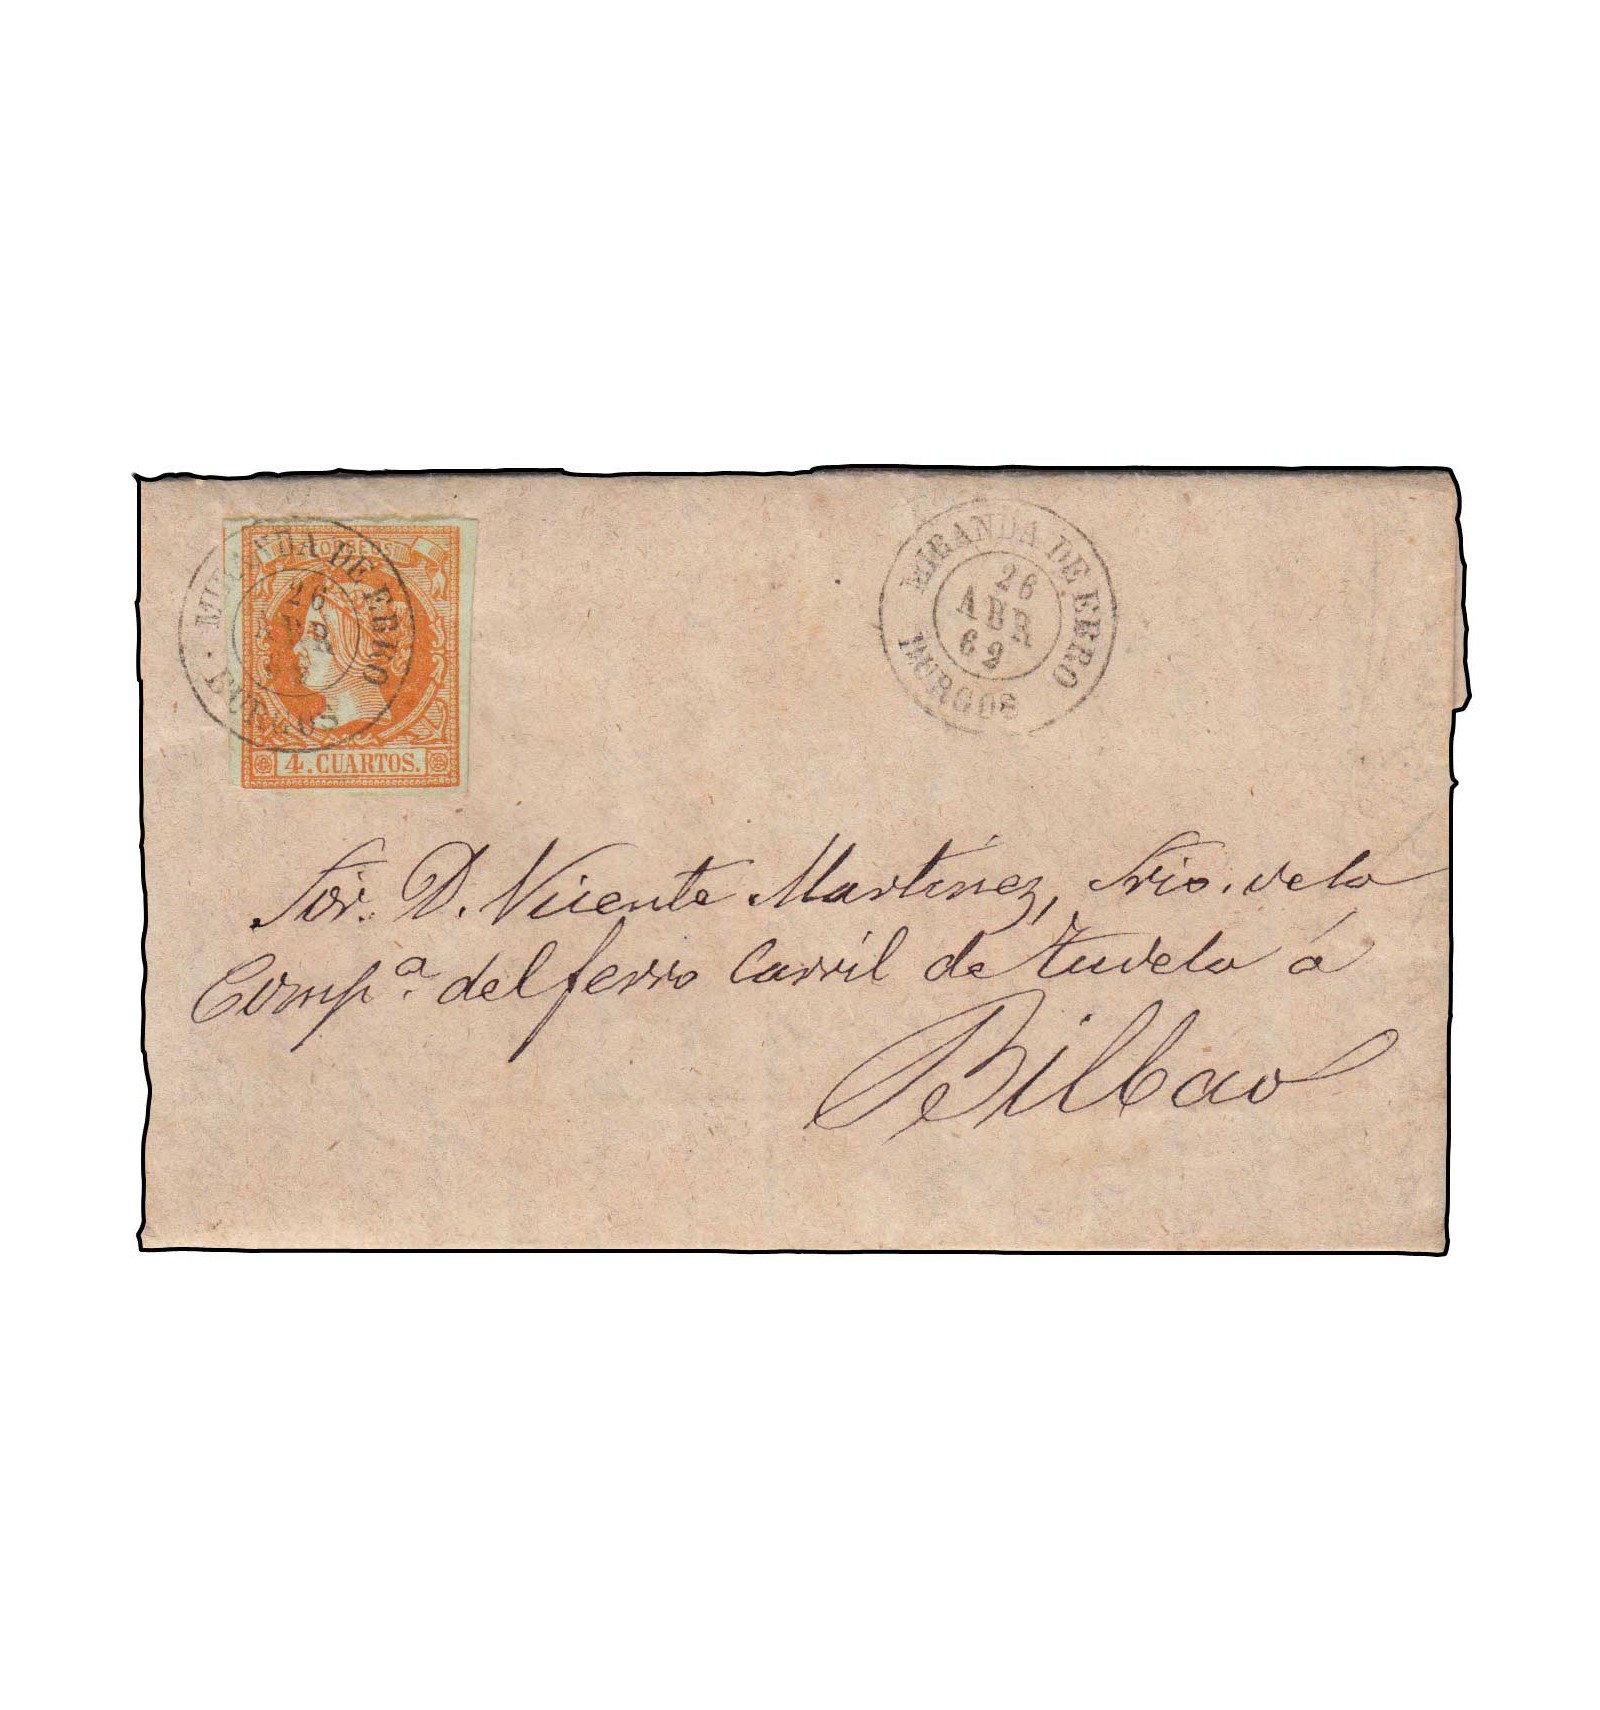 CORREOS
MIRANDA DE EBRO
26
ABR
BURGOS
4. CUARTOS.
MIRANDA DE EBRO
26
ABR
62
BURGOS
Sor. D. Vicente Martinez, Srio. de la
Comp.a del ferro Carril de Tudela á
Bilbao